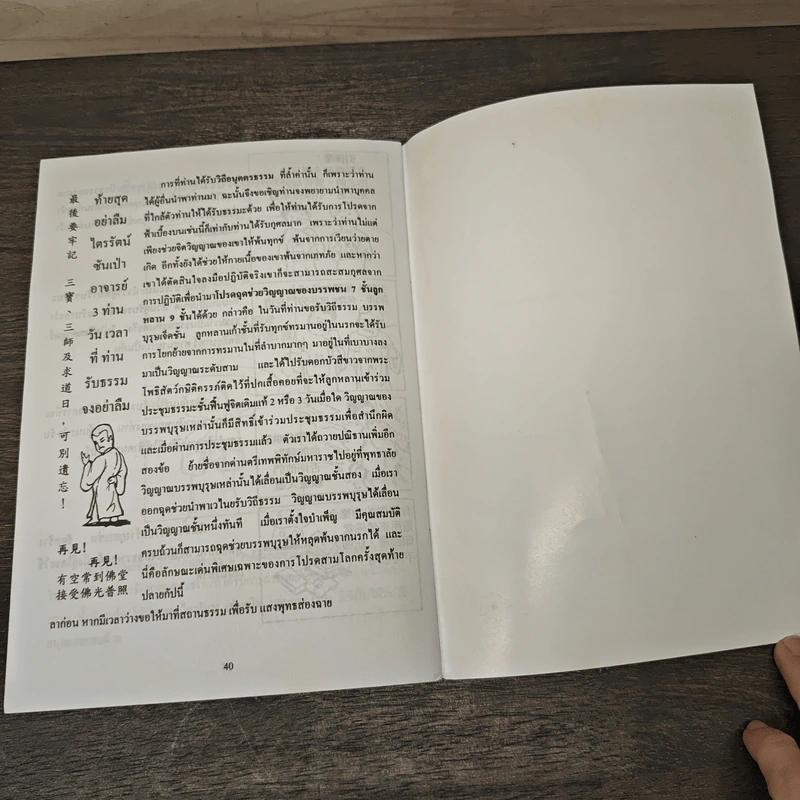 最後要牢記 三寶、三師及求道日，可別遺忘！
ท้ายสุด
อย่าลืม
ไตรรัตน์
ซันเป่า
อาจารย์
3 ท่าน
วัน เวลา
ที่ ท่าน
รับธรรม
จงอย่าลืม
再見！
再見！
有空常到佛堂
接受佛光普照
การที่ท่านได้รับวิถีอนุตตรธรรม ที่ล้ำค่านั้น ก็เพราะว่าท่าน
ได้ผู้อื่นนำพาท่านมา ฉะนั้นจึงขอเชิญท่านจงพยายามนำพาบุคคล
ที่ใกล้ตัวท่านให้ได้รับธรรมะด้วย เพื่อให้ท่านได้รับการโปรดจาก
ฟ้าเบื้องบนเช่นนี้ก็เท่ากับท่านได้รับกุศลมาก เพราะว่าท่านไม่แต่
เพียงช่วยจิตวิญญาณของเขาให้พ้นทุกข์ พ้นจากการเวียนว่ายตาย
เกิด อีกทั้งยังได้ช่วยให้กายเนื้อของเขาพ้นจากเภทภัย และหากว่า
เขาได้ตัดสินใจลงมือปฏิบัติจริงเขาก็จะสามารถสะสมกุศลจาก
การปฏิบัติเพื่อนำมาโปรดฉุดช่วยวิญญาณของบรรพชน 7 ชั้นลูก
หลาน 9 ชั้นได้ด้วย กล่าวคือ ในวันที่ท่านขอรับวิถีธรรม บรรพ
บุรุษเจ็ดชั้น ลูกหลานเก้าชั้นที่รับทุกข์ทรมานอยู่ในนรกจะได้รับ
การโยกย้ายจากการทรมานในที่ลำบากมากๆ มาอยู่ในที่เบาบางลง
มาเป็นวิญญาณระดับสาม และได้ไปรับดอกบัวสีขาวจากพระ
โพธิสัตว์กษิติครรภ์ติดไว้ที่ปกเสื้อคอยที่จะให้ลูกหลานเข้าร่วม
ประชุมธรรมะชั้นฟื้นฟูจิตเดิมแท้ 2 หรือ 3 วันเมื่อใด วิญญาณของ
บรรพบุรุษเหล่านั้นก็มีสิทธิ์เข้าร่วมประชุมธรรมเพื่อสำนึกผิด
และเมื่อผ่านการประชุมธรรมแล้ว ตัวเราได้ถวายปณิธานเพิ่มอีก
สองข้อ ย้ายชื่อจากด่านตรีเทพพิทักษ์มหาราชไปอยู่ที่พุทธาลัย
วิญญาณบรรพบุรุษเหล่านั้นได้เลื่อนเป็นวิญญาณชั้นสอง เมื่อเรา
ออกฉุดช่วยนำพาเวไนยรับวิถีธรรม วิญญาณบรรพบุรุษได้เลื่อน
เป็นวิญญาณชั้นหนึ่งทันที เมื่อเราตั้งใจบำเพ็ญ มีคุณสมบัติ
ครบถ้วนก็สามารถฉุดช่วยบรรพบุรุษให้หลุดพ้นจากนรกได้ และ
นี่คือลักษณะเด่นพิเศษเฉพาะของการโปรดสามโลกครั้งสุดท้าย
ปลายกัปนี้
ลาก่อน หากมีเวลาว่างขอให้มาที่สถานธรรม เพื่อรับ แสงพุทธส่องฉาย
40